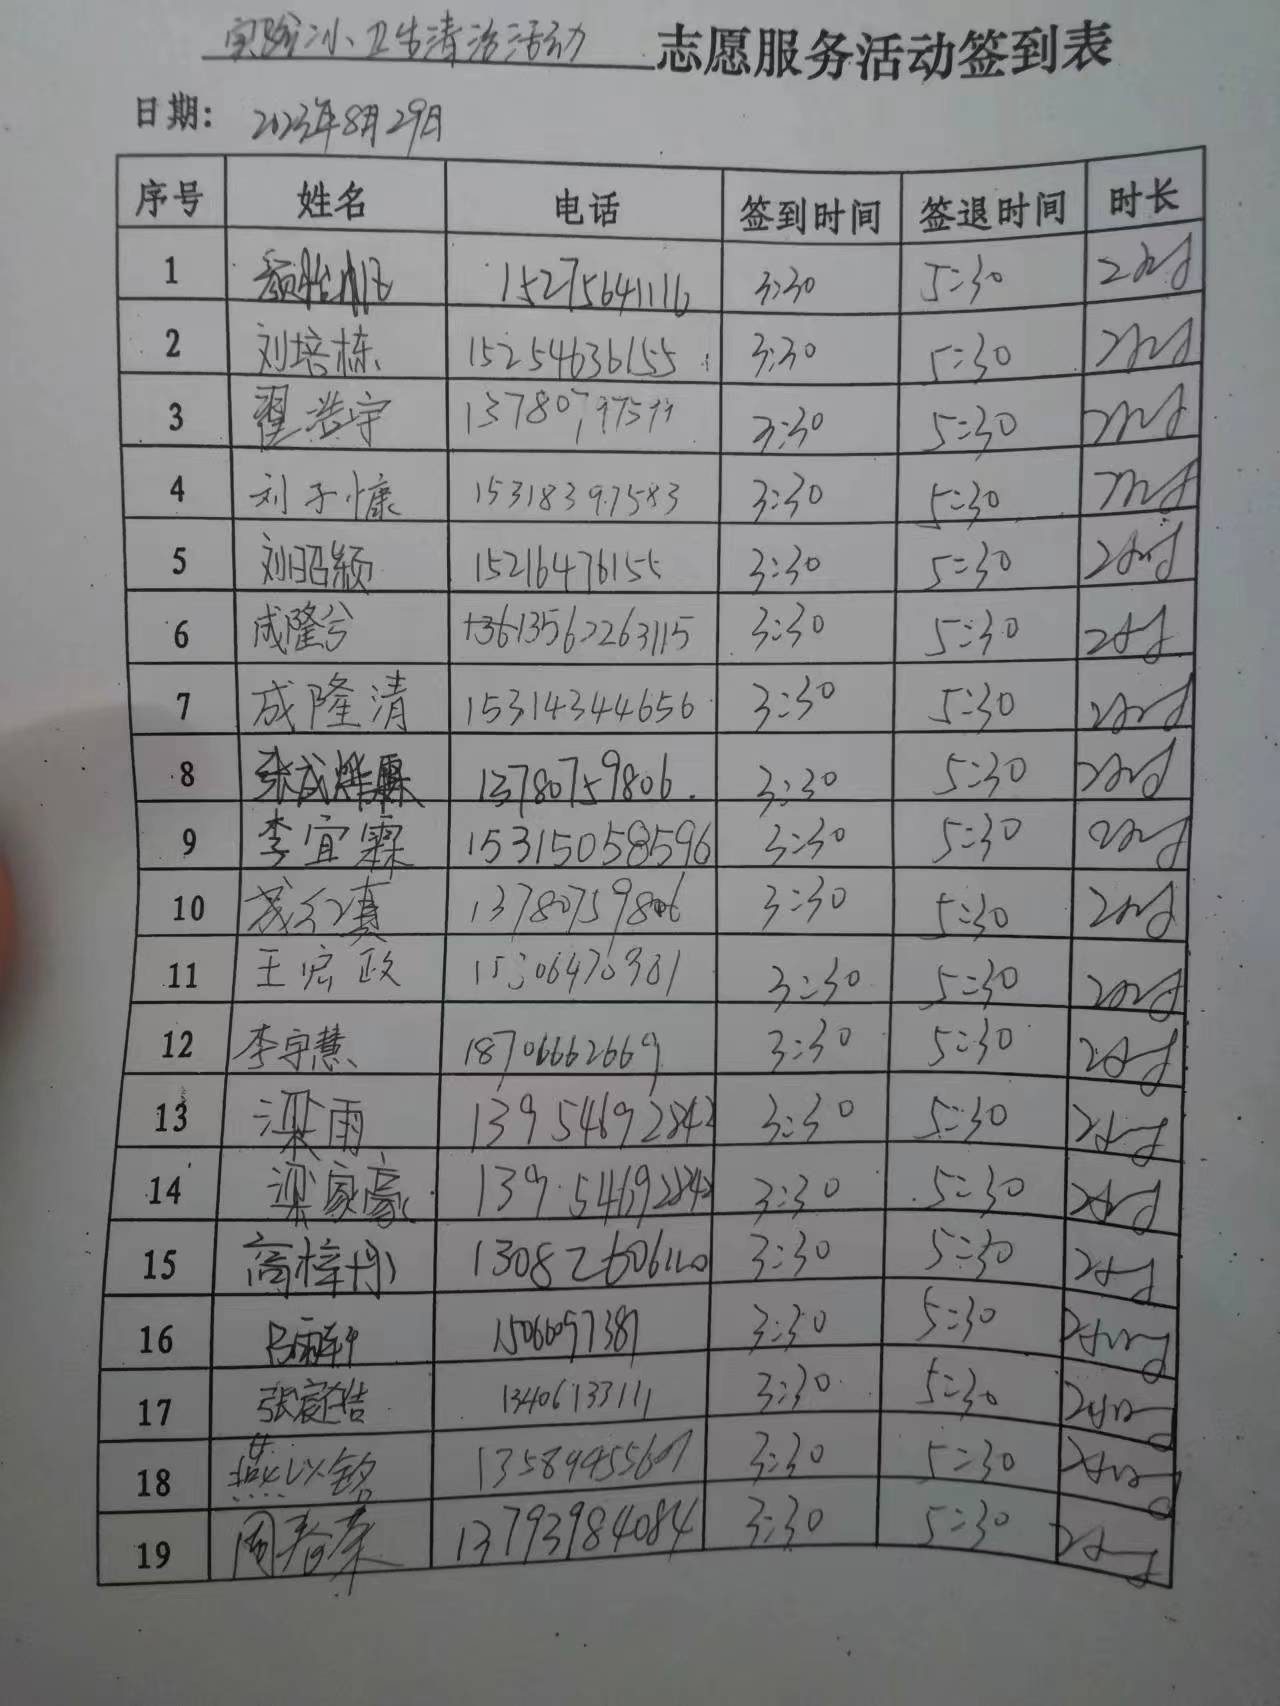 实验小卫生清洁活动 志愿服务活动签到表
日期: 2023年8月29日
序号 姓名 电话 签到时间 签退时间 时长
1 15275641116 3:30 5:30 2小时
2 刘培栋 15254636155 3:30 5:30 2小时
3 翟浩宇 13780797599 3:30 5:30 2小时
4 刘子慷 15318397583 3:30 5:30 2小时
5 刘昭颍 15216476155 3:30 5:30 2小时
6 成隆兮 3:30 5:30 2小时
7 成隆清 15314344656 3:30 5:30 2小时
8 13780759806 3:30 5:30 2小时
9 李宜霖 15315058596 3:30 5:30 2小时
10 13780759806 3:30 5:30 2小时
11 王宏政 3:30 5:30 2小时
12 李宇慧 18706662669 3:30 5:30 2小时
13 梁雨 13954692842 3:30 5:30 2小时
14 梁家豪 13954692842 3:30 5:30 2小时
15 高梓丹 3:30 5:30 2小时
16 15066097387 3:30 5:30 2小时
17 13406133111 3:30 5:30 2小时
18 燕以铭 13589955607 3:30 5:30 2小时
19 周春荣 13793984084 3:30 5:30 2小时